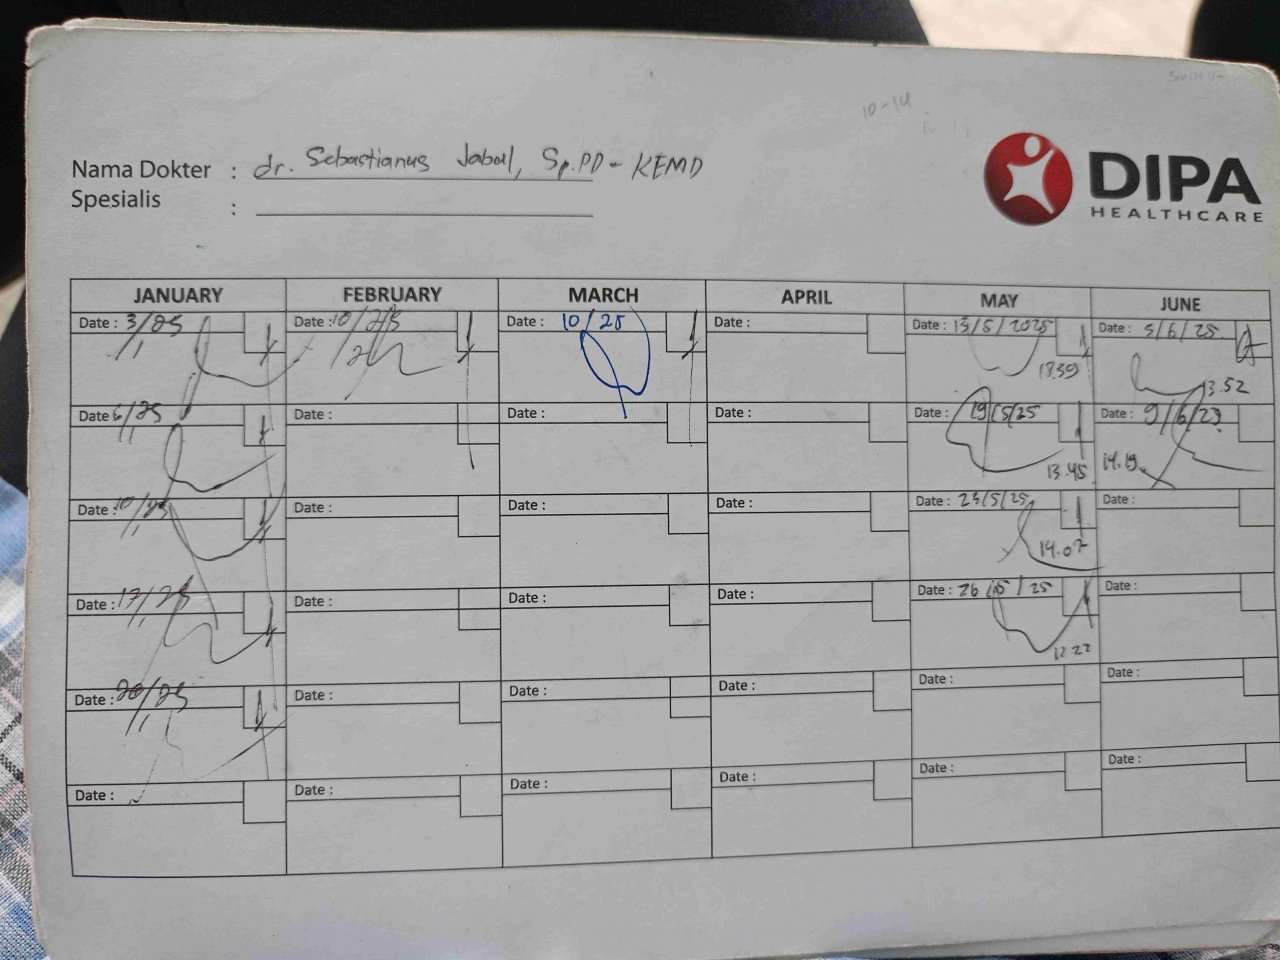 10-14
Nama Dokter : dr. Sebastianus Jabul, Sp.PD - KEMD
Spesialis :
DIPA
HEALTHCARE
JANUARY FEBRUARY MARCH APRIL MAY JUNE
Date : 3/1/25 Date : 10/2/25 Date : 10/25 Date : Date : 13/5/2025 Date : 5/6/25
13.52
Date : 6/1/25 Date : Date : Date : Date : 19/5/25 Date : 9/6/25
13.45 14.19
Date : 10/1/25 Date : Date : Date : Date : 23/5/25 Date :
14.07
Date : 17/1/25 Date : Date : Date : Date : 26/5/25 Date :
Date : 20/1/25 Date : Date : Date : Date : Date :
Date : Date : Date : Date : Date : Date :